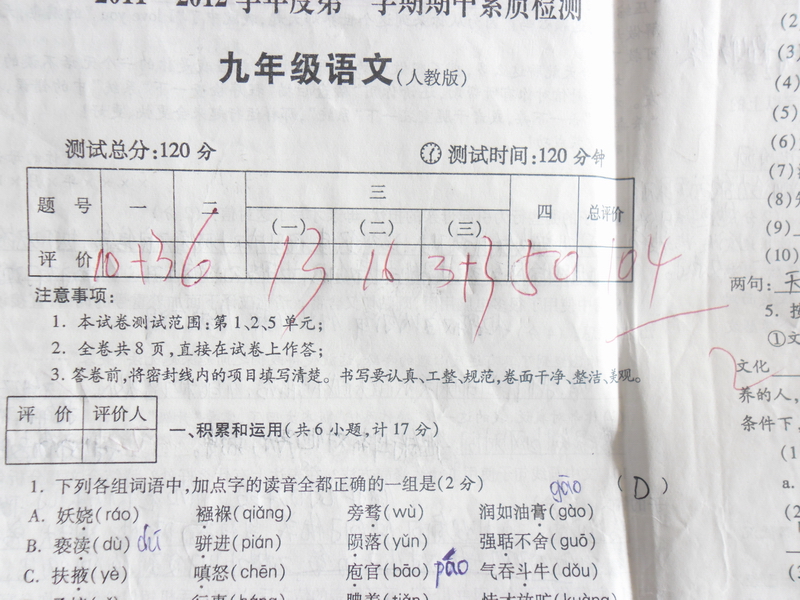 2011—2012学年度第一学期期中素质检测
九年级语文(人教版)
测试总分:120分 测试时间:120分钟
题号 一 二 三 四 总评价
(一) (二) (三)
评价 10+3 6 13 16 3+3 50 104
注意事项:
1. 本试卷测试范围:第1、2、5单元;
2. 全卷共8页,直接在试卷上作答;
3. 答卷前,将密封线内的项目填写清楚。书写要认真、工整、规范,卷面干净、整洁、美观。
评价 评价人
一、积累和运用(共6小题,计17分)
1. 下列各组词语中,加点字的读音全都正确的一组是(2分) gāo (D)
A. 妖娆(ráo) 襁褓(qiǎng) 旁骛(wù) 润如油膏(gào)
B. 亵渎(dù) dú 骈进(pián) 陨落(yǔn) 强聒不舍(guō)
C. 扶掖(yè) 嗔怒(chēn) 庖官(bāo) páo 气吞斗牛(dǒu)
(2
(3)
(4)
(5)
(6)
(7)
(8)
(9)
(10)
两句:
5.
①文
文化
养的人,
条件下,
(1
a.
(2